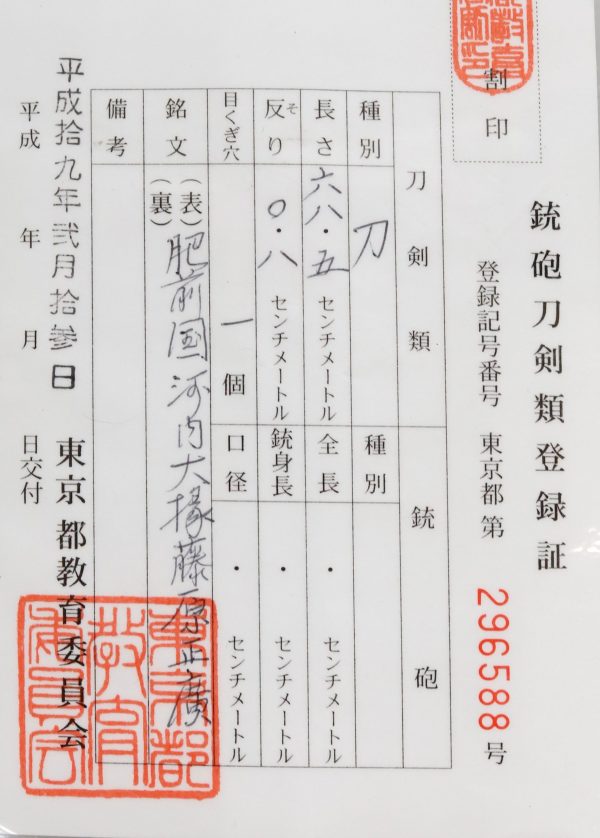 割印
銃砲刀剣類登録証
登録記号番号 東京都 第 296588 号
刀剣類 銃砲
種別 刀 種別
長さ 六八・五 センチメートル 全長 ・ センチメートル
反り そ 〇・八 センチメートル 銃身長 ・ センチメートル
目くぎ穴 一 個 口径 ・ センチメートル
銘文 (表) 肥前国河内大掾藤原正廣
(裏)
備考
平成拾九年弐月拾参日
平成 年 月 日交付
東京都教育委員会
東京都教育委員会